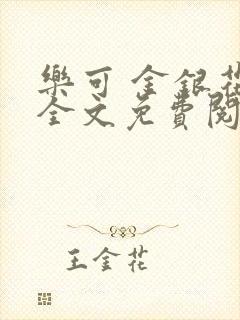 樂可 金銀花
全文免費閱
王金花